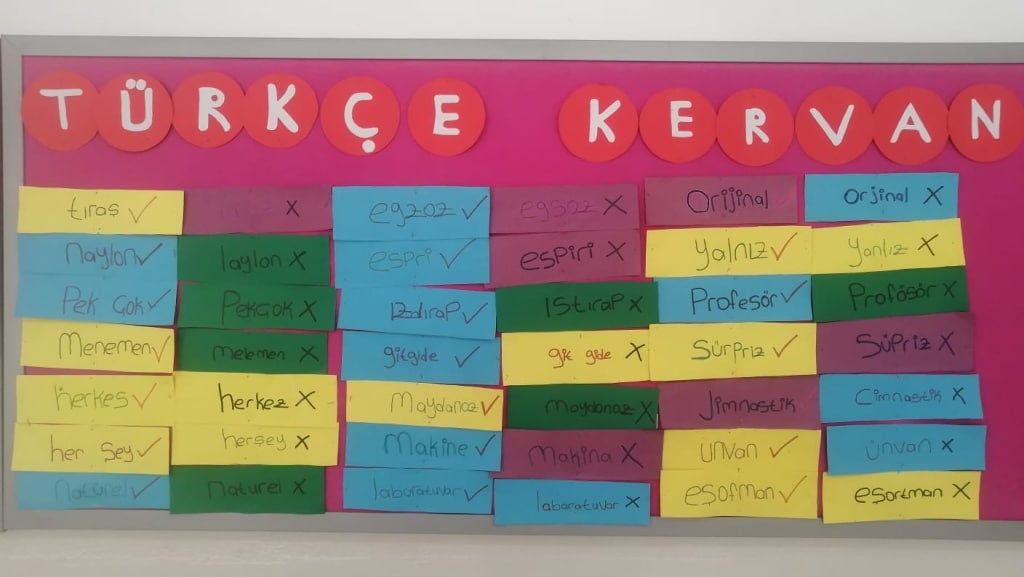 TÜRKÇE KERVAN
tıraş ✓ X egzoz ✓ egsoz X Orijinal Orjinal X
Naylon ✓ laylon X espri ✓ espiri X Yalnız ✓ yanlız X
Pek Çok ✓ PekÇok X Izdırap ✓ Istırap X Profesör ✓ Profösör X
Menemen ✓ melemen X gitgide ✓ git gide X Sürpriz ✓ Süpriz X
herkes ✓ herkez X Maydanoz ✓ maydonoz X Jimnastik Cimnastik X
her Şey ✓ herşey X Makine ✓ Makina X unvan ✓ ünvan X
Natürel ✓ Naturel X laboratuvar ✓ X eşofman ✓ eşortman X